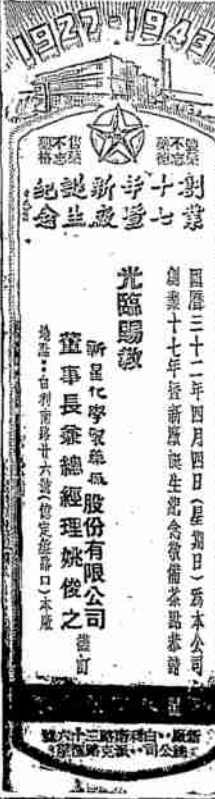 1927-1943
創業
十七
年暨
新廠
誕生
紀念
國曆三十二年四月四日(星期日)為本公司
創業十七年暨新廠誕生紀念敬備茶點恭請
光臨賜教
新星化學製藥廠股份有限公司
董事長兼總經理姚俊之 謹訂
地點：白利南路卅六號(憶定盤路口)本廠
新廠：白利南路三十六號
總公司：派克路